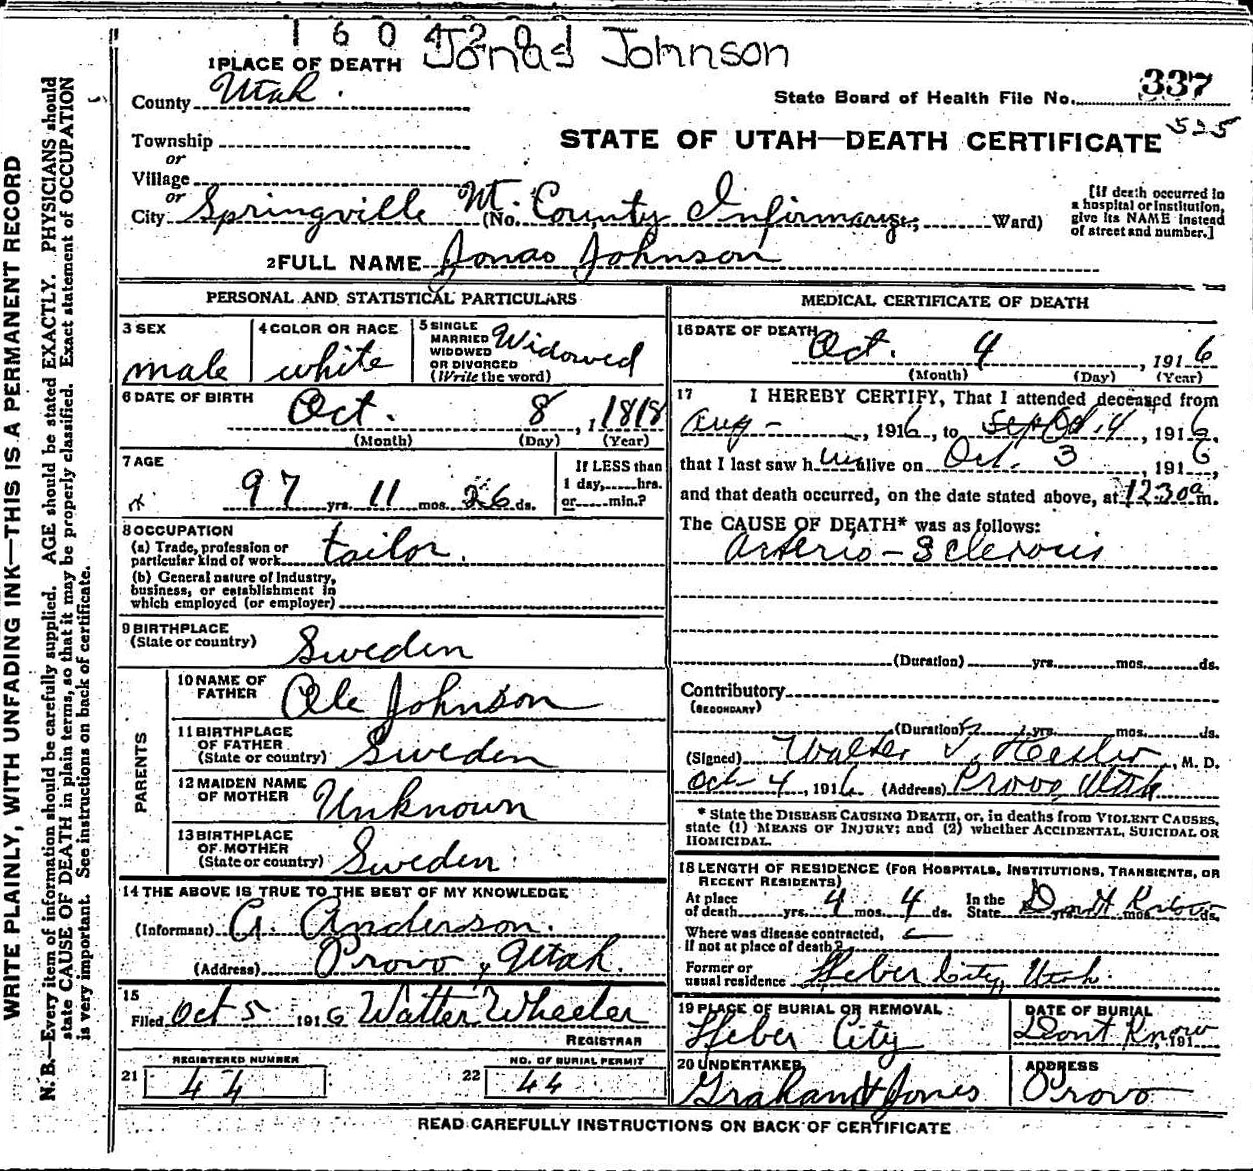 1 6 0 4 2 0 1
Jonas Johnson
1 PLACE OF DEATH
County Utah.
State Board of Health File No. 337
525
STATE OF UTAH—DEATH CERTIFICATE
Township
or
Village
or
City Springville (No. County Infirmary, Ward)
[If death occurred in
a hospital or institution,
give its NAME instead
of street and number.]
2 FULL NAME Jonas Johnson
PERSONAL AND STATISTICAL PARTICULARS
3 SEX
male
4 COLOR OR RACE
white
5 SINGLE
MARRIED
WIDOWED
OR DIVORCED
(Write the word)
Widowed
6 DATE OF BIRTH
Oct. 8, 1818
(Month) (Day) (Year)
7 AGE
97 yrs. 11 mos. 26 ds.
If LESS than
1 day, hrs.
or min.?
8 OCCUPATION
(a) Trade, profession or
particular kind of work tailor.
(b) General nature of Industry,
business, or establishment in
which employed (or employer)
9 BIRTHPLACE
(State or country) Sweden
PARENTS
10 NAME OF
FATHER Ole Johnson
11 BIRTHPLACE
OF FATHER
(State or country) Sweden
12 MAIDEN NAME
OF MOTHER Unknown
13 BIRTHPLACE
OF MOTHER
(State or country) Sweden
14 THE ABOVE IS TRUE TO THE BEST OF MY KNOWLEDGE
(Informant) A. Anderson.
(Address) Provo, Utah.
15
Filed Oct 5 1916 Walter Wheeler
REGISTRAR
REGISTERED NUMBER
21 44
NO. OF BURIAL PERMIT
22 44
MEDICAL CERTIFICATE OF DEATH
16 DATE OF DEATH
Oct. 4, 1916
(Month) (Day) (Year)
17 I HEREBY CERTIFY, That I attended deceased from
Aug - , 1916, to Oct. 4, 1916,
that I last saw him alive on Oct. 3, 1916,
and that death occurred, on the date stated above, at 12:30 a m.
The CAUSE OF DEATH* was as follows:
Arterio-Sclerosis
(Duration) yrs. mos. ds.
Contributory
(SECONDARY)
(Duration) yrs. mos. ds.
(Signed) Walter T. Hasler, M. D.
Oct 4, 1916 (Address) Provo, Utah
* State the DISEASE CAUSING DEATH, or, in deaths from VIOLENT CAUSES,
state (1) MEANS OF INJURY; and (2) whether ACCIDENTAL, SUICIDAL OR
HOMICIDAL.
18 LENGTH OF RESIDENCE (FOR HOSPITALS, INSTITUTIONS, TRANSIENTS, OR
RECENT RESIDENTS)
At place
of death yrs. 4 mos. 4 ds.
In the
State Dont Know yrs. mos. ds.
Where was disease contracted,
if not at place of death?
Former or
usual residence Heber City, Utah.
19 PLACE OF BURIAL OR REMOVAL
Heber City
DATE OF BURIAL
Dont Know 191
20 UNDERTAKER
Graham & Jones
ADDRESS
Provo
READ CAREFULLY INSTRUCTIONS ON BACK OF CERTIFICATE
WRITE PLAINLY, WITH UNFADING INK—THIS IS A PERMANENT RECORD
N. B.—Every item of information should be carefully supplied. AGE should be stated EXACTLY. PHYSICIANS should
state CAUSE OF DEATH in plain terms, so that it may be properly classified. Exact statement of OCCUPATION
is very important. See instructions on back of certificate.